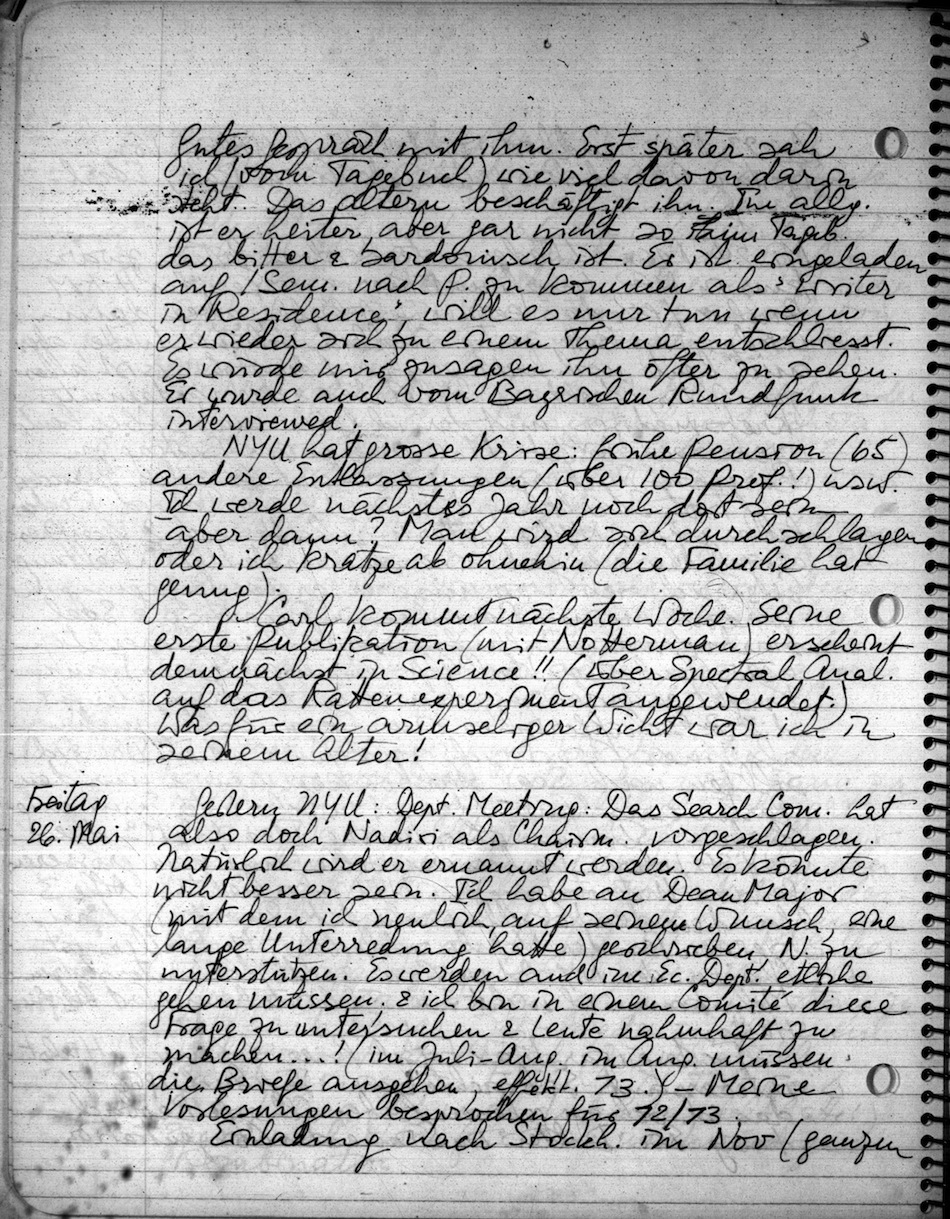 Gutes Gespräch mit ihm. Erst später sah
ich (vom Tagebuch) wie viel davon darin
steht. Das Altern beschäftigt ihn. Im allg.
ist er heiter, aber gar nicht so Tageb.
das bitter & sardonisch ist. Er ist eingeladen
auf 1 Sem. nach P. zu kommen als "Writer
in Residence", will es nur tun wenn
er wieder sich zu einem Thema entschliesst.
Es würde mir zusagen ihn öfter zu sehen.
Er wurde auch vom Bayrischen Rundfunk
interviewed.
NYU hat grosse Krise: frühe Pension (65)
andere Entlassungen (über 100 Prof.!) usw.
Ich werde nächstes Jahr noch dort sein
aber dann? Man wird sich durchschlagen
oder ich kratze ab ohnehin (die Familie hat
genug).
Carl kommt nächste Woche. Seine
erste Publikation (mit Notterman) erscheint
demnächst in Science!! (über Spectral Anal.
auf das Rattenexperiment angewendet.)
Was für ein armseliger Wicht war ich in
seinem Alter!
Freitag
26. Mai
Gestern NYU: Dept. Meeting: Das Search Com. hat
also doch Nadiri als Chairm. vorgeschlagen.
Natürlich wird er ernannt werden. Es könnte
nicht besser sein. Ich habe an Dean Major
(mit dem ich neulich, auf seinen Wunsch, eine
lange Unterredung hatte) geschrieben, N. zu
unterstützen. Es werden auch im Ec. Dept. etliche
gehen müssen, & ich bin in einem Comité diese
Frage zu untersuchen & Leute nahmhaft zu
machen...! (im Juli-Aug. im Aug. müssen
die Briefe ausgehen, effekt. 73.) - Meine
Vorlesungen besprochen für 72/73.
Einladung nach Stockh. im Nov (ganzen